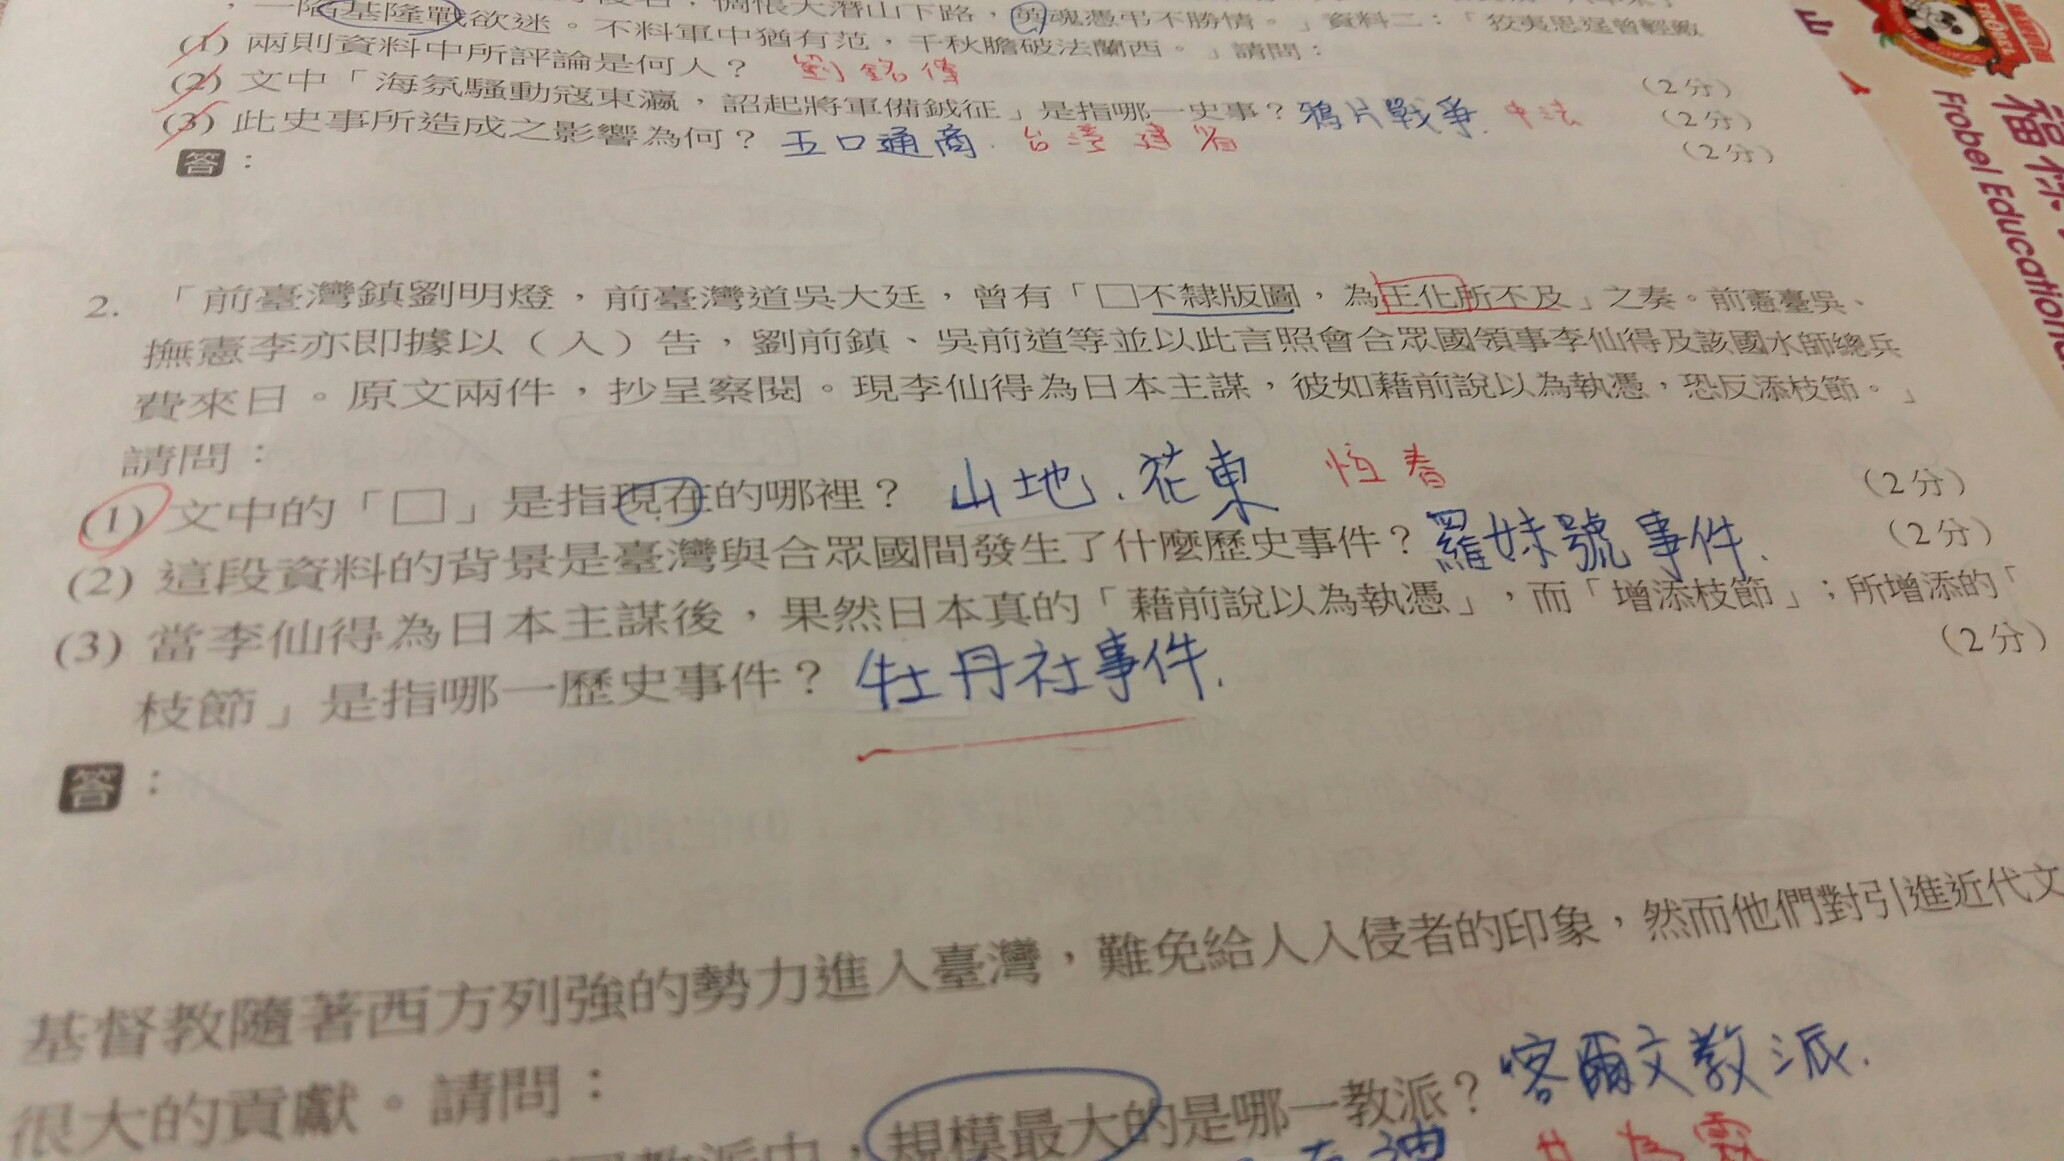 一陷基隆戰欲迷。不料軍中猶有范，千秋膽破法蘭西。」請問：
，惆悵大潛山下路，英魂憑弔不勝情。」資料二：「狡夷思逞曾輕敵
(1) 兩則資料中所評論是何人？ 劉銘傳 (2分)
(2) 文中「海氛騷動寇東瀛，詔起將軍備鉞征」是指哪一史事？鴉片戰爭. 中法 (2分)
(3) 此史事所造成之影響為何？ 五口通商. 台灣建省 (2分)
答：
2. 「前臺灣鎮劉明燈，前臺灣道吳大廷，曾有「□不隸版圖，為王化所不及」之奏。前憲臺吳、
撫憲李亦即據以（入）告，劉前鎮、吳前道等並以此言照會合眾國領事李仙得及該國水師總兵
費來日。原文兩件，抄呈察閱。現李仙得為日本主謀，彼如藉前說以為執憑，恐反添枝節。」
請問：
(1) 文中的「□」是指現在的哪裡？ 山地.花東 恆春 (2分)
(2) 這段資料的背景是臺灣與合眾國間發生了什麼歷史事件？羅妹號事件. (2分)
(3) 當李仙得為日本主謀後，果然日本真的「藉前說以為執憑」，而「增添枝節」；所增添的「
枝節」是指哪一歷史事件？ 牡丹社事件. (2分)
答：
基督教隨著西方列強的勢力進入臺灣，難免給人入侵者的印象，然而他們對引進近代文
很大的貢獻。請問：
教派中，規模最大的是哪一教派？ 喀爾文教派.
福
Frobel Educational